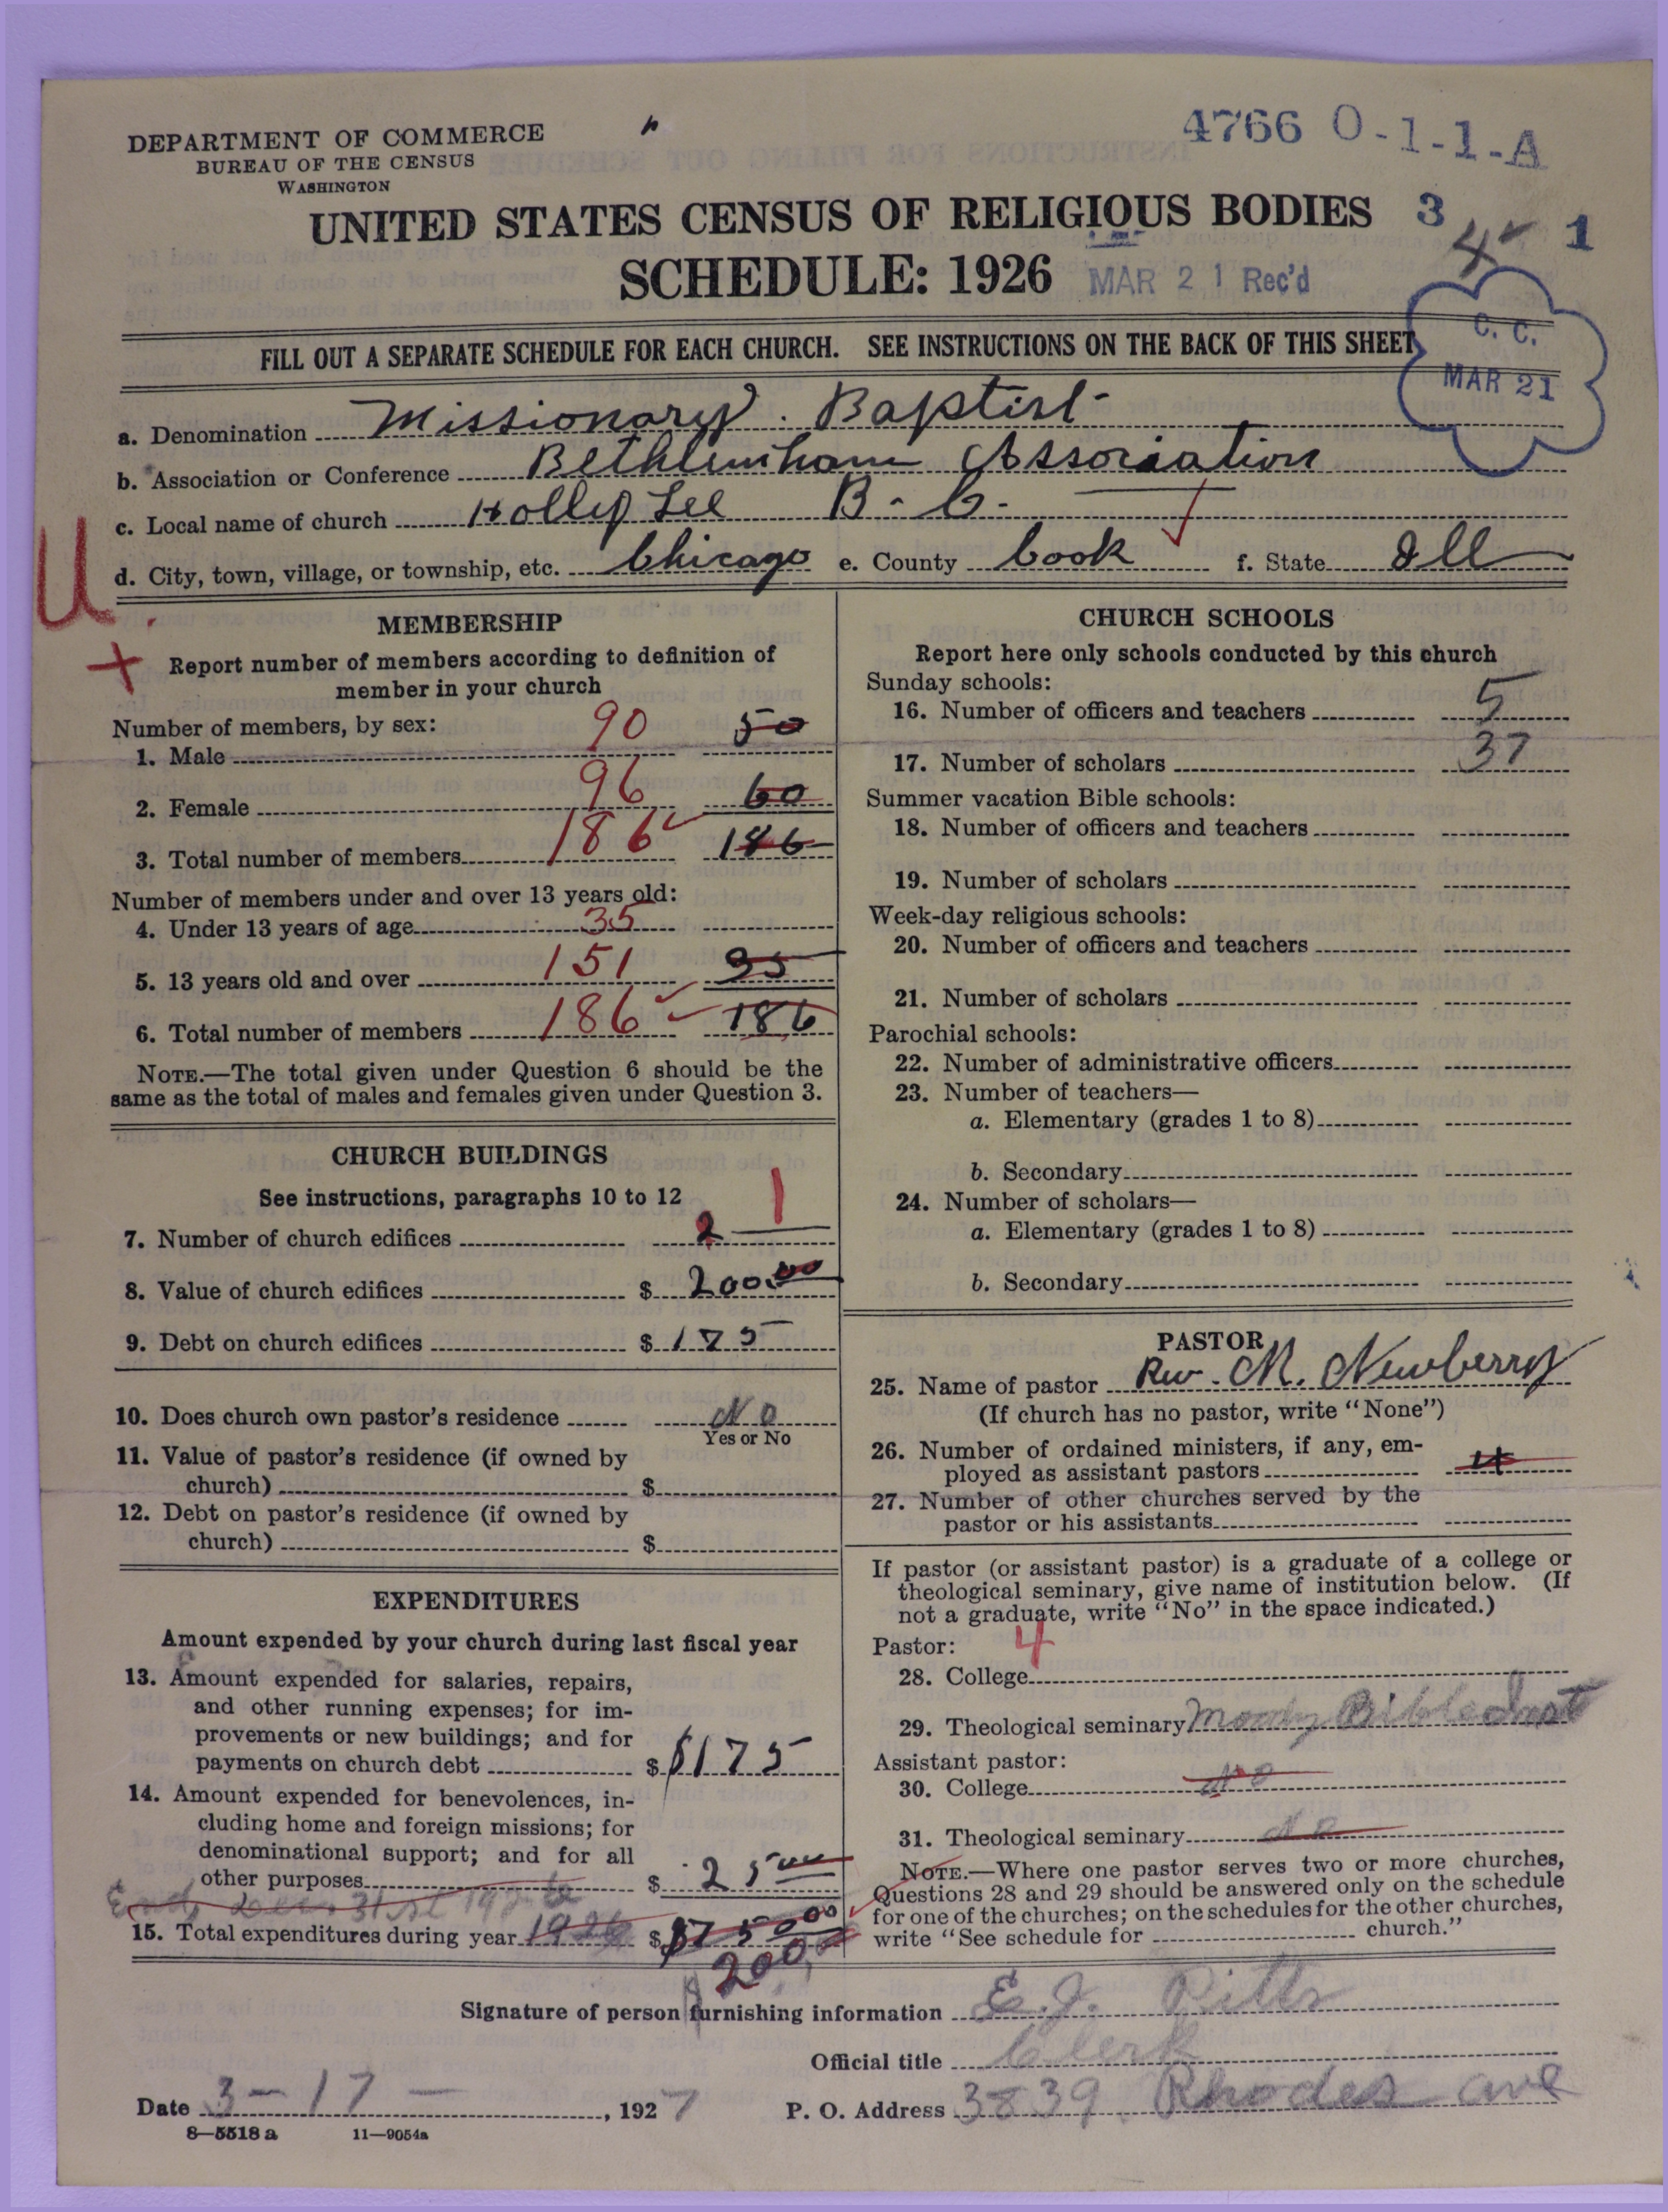 DEPARTMENT OF COMMERCE
BUREAU OF THE CENSUS
WASHINGTON
4766 O-1-1-A
UNITED STATES CENSUS OF RELIGIOUS BODIES 3 4 1
SCHEDULE: 1926 MAR 21 Rec'd
FILL OUT A SEPARATE SCHEDULE FOR EACH CHURCH. SEE INSTRUCTIONS ON THE BACK OF THIS SHEET
C. C.
MAR 21
a. Denomination Missionary. Baptist
b. Association or Conference Bethlemham Association
c. Local name of church Holly Lee B. C.
U.
d. City, town, village, or township, etc. Chicago e. County Cook f. State Ill
MEMBERSHIP
Report number of members according to definition of
member in your church
Number of members, by sex:
1. Male 90 50
2. Female 96 60
3. Total number of members 186 186
Number of members under and over 13 years old:
4. Under 13 years of age 35
5. 13 years old and over 151 35
6. Total number of members 186 186
NOTE.—The total given under Question 6 should be the
same as the total of males and females given under Question 3.
CHURCH BUILDINGS
See instructions, paragraphs 10 to 12
7. Number of church edifices 2 1
8. Value of church edifices $ 200.00
9. Debt on church edifices $ 175
10. Does church own pastor's residence No
Yes or No
11. Value of pastor's residence (if owned by
church) $
12. Debt on pastor's residence (if owned by
church) $
EXPENDITURES
Amount expended by your church during last fiscal year
13. Amount expended for salaries, repairs,
and other running expenses; for im-
provements or new buildings; and for
payments on church debt $ $175
14. Amount expended for benevolences, in-
cluding home and foreign missions; for
denominational support; and for all
other purposes $ 25 00
End Dec. 31st 1926
15. Total expenditures during year 1926 $ $75000
200.
CHURCH SCHOOLS
Report here only schools conducted by this church
Sunday schools:
16. Number of officers and teachers 5
17. Number of scholars 37
Summer vacation Bible schools:
18. Number of officers and teachers
19. Number of scholars
Week-day religious schools:
20. Number of officers and teachers
21. Number of scholars
Parochial schools:
22. Number of administrative officers
23. Number of teachers—
a. Elementary (grades 1 to 8)
b. Secondary
24. Number of scholars—
a. Elementary (grades 1 to 8)
b. Secondary
PASTOR
25. Name of pastor Rev. M. Newberry
(If church has no pastor, write "None")
26. Number of ordained ministers, if any, em-
ployed as assistant pastors 4
27. Number of other churches served by the
pastor or his assistants
If pastor (or assistant pastor) is a graduate of a college or
theological seminary, give name of institution below. (If
not a graduate, write "No" in the space indicated.)
Pastor: 4
28. College
29. Theological seminary Moody Bible Inst
Assistant pastor:
30. College No
31. Theological seminary No
NOTE.—Where one pastor serves two or more churches,
Questions 28 and 29 should be answered only on the schedule
for one of the churches; on the schedules for the other churches,
write "See schedule for church."
Signature of person furnishing information E. J. Pitts
Official title Clerk
Date 3-17-, 1927 P. O. Address 3839 Rhodes ave
8—5518a 11—9054a